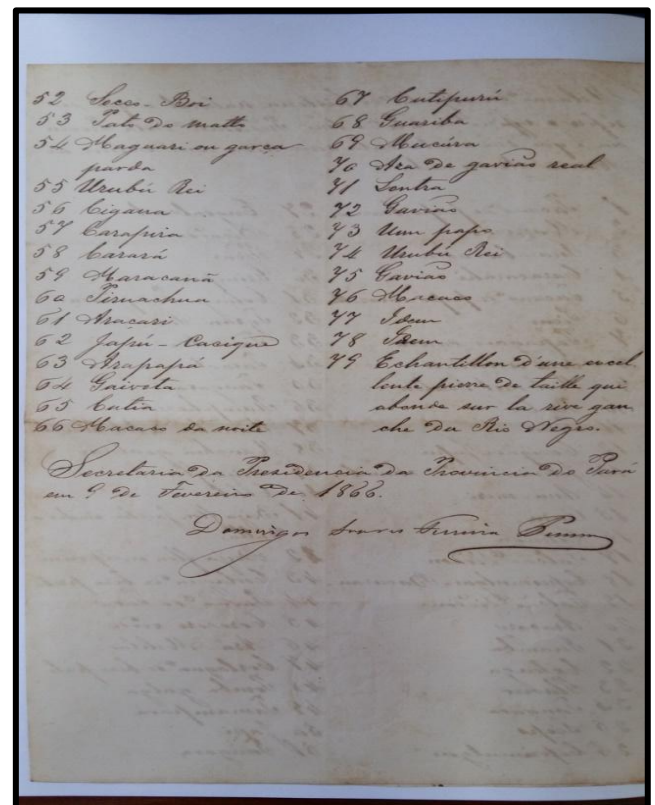 52 Socco-Boi
53 Pato do matto
54 Maguari ou garça
parda
55 Urubú Rei
56 Cigana
57 Carapira
58 Carará
59 Maracanã
60
61 Aracari
62 Japú-Cacique
63 Arapapá
64 Gaivota
65 Cutia
66 Macaco da noite
67 Cutipurú
68 Guariba
69 Mucúra
70 Aza de gavião real
71 Lontra
72 Gavião
73 Um papo
74 Urubú Rei
75 Gavião
76 Macaco
77 Idem
78 Idem
79 Echantillon d'une excel
lente pierre de taille qui
abonde sur la rive gau
che du Rio Negro.
Secretaria da Presidencia da Provincia do Pará
em 9 de Fevereiro de 1866.
Domingos Soares Ferreira Penna